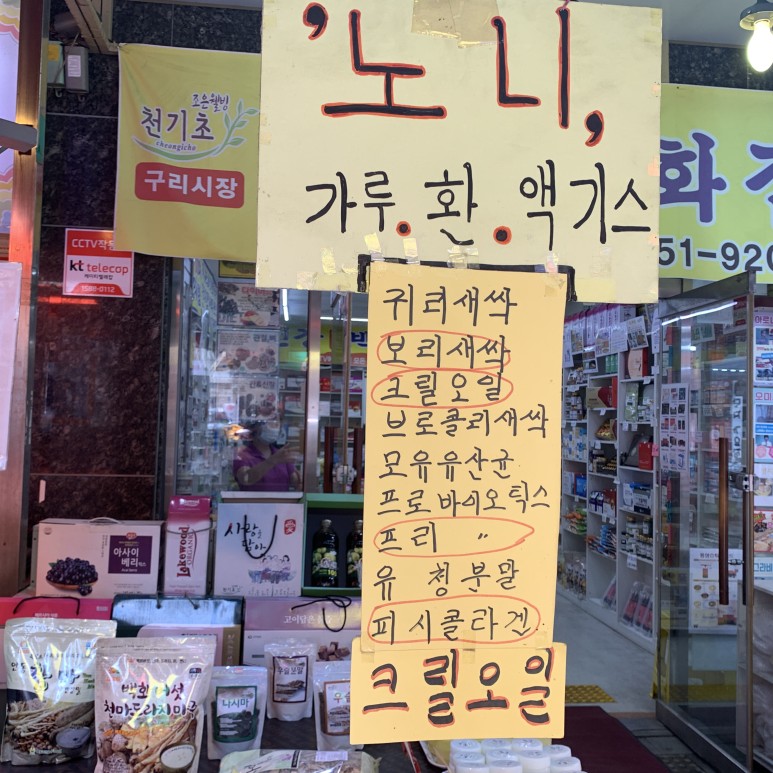 '노니,
가루.환.액기스
귀리새싹
보리새싹
크릴오일
브로콜리새싹
모유유산균
프로바이오틱스
프리 〃
유청분말
피시콜라겐
크릴오일
조은웰빙
천기초
cheongicho
구리시장
CCTV작동
kt telecop
1588-0112
화
51-920
아사이
베리
Lakewood
사랑을
담아
고이담은
백화버섯
천마도라지마죽
나시마
우슬분말